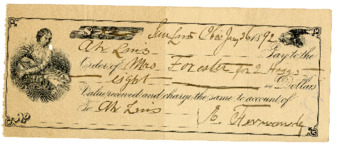 San Luis Obispo Jany 26 1892
Ah Luis Pay to the
Order of Mrs. Forester for 2 Hogs
eight Dollars
Value received and charge the same to account of
To Ah Luis